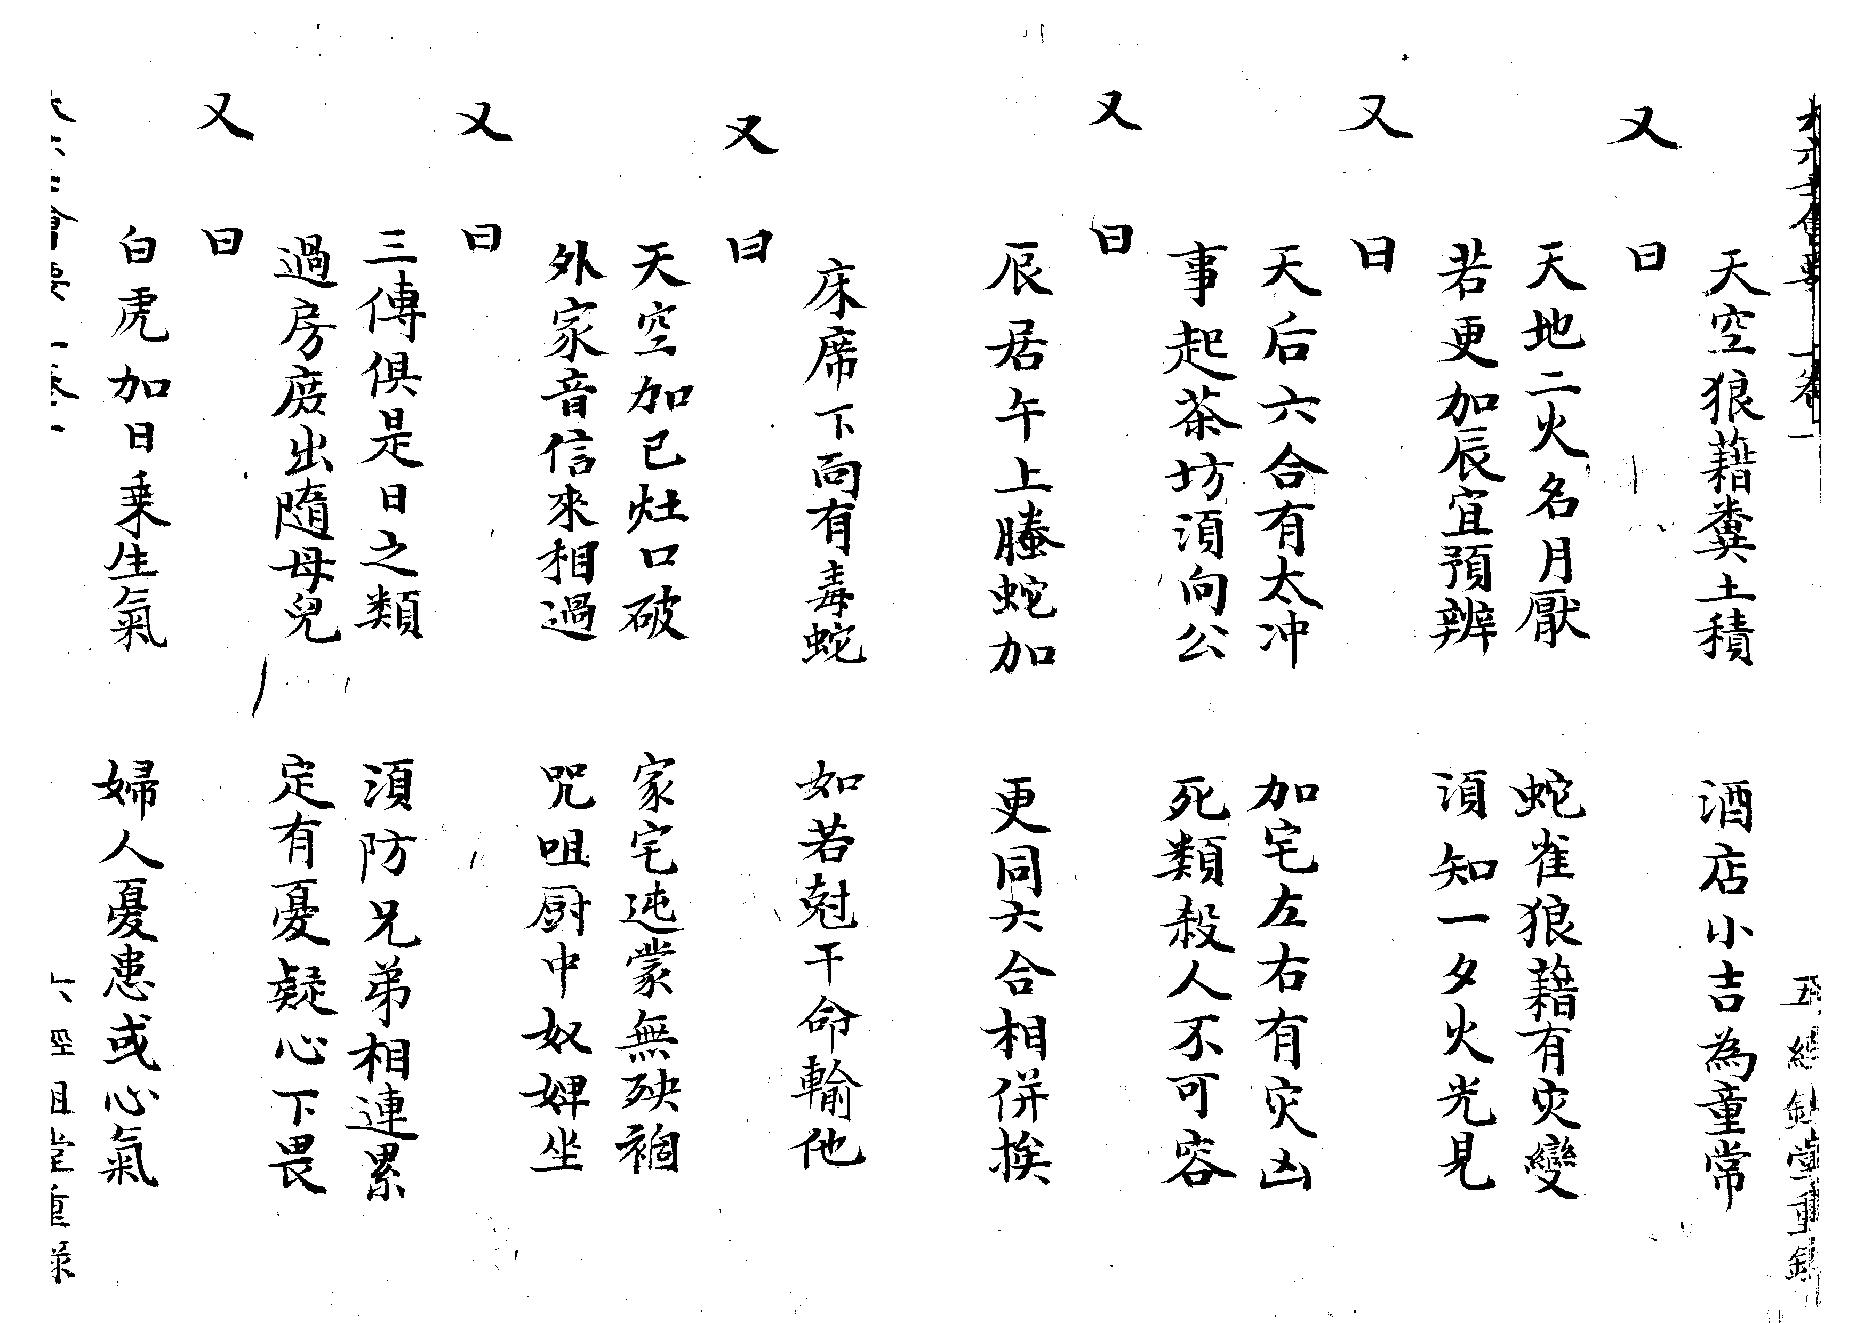 天空狼藉糞土積　酒店小吉為童常
又曰
天地二火名月厭　蛇雀狼藉有灾變
若更加辰宜預辨　湏知一夕火光見
又曰
天后六合有太冲　加宅左右有灾凶
事起茶坊湏向公　死類殺人不可容
又曰
辰居午上螣蛇加　更同六合相併挨
床席下面有毒蛇　如若尅干命輸他
又曰
天空加巳灶口破　家宅迍蒙無殃禍
外家音信來相過　咒咀厨中奴婢坐
又曰
三傳俱是日之類　湏防兄弟相連累
過房庶出隨母兒　定有憂疑心下畏
又曰
白虎加日乗生氣　婦人憂患或心氣